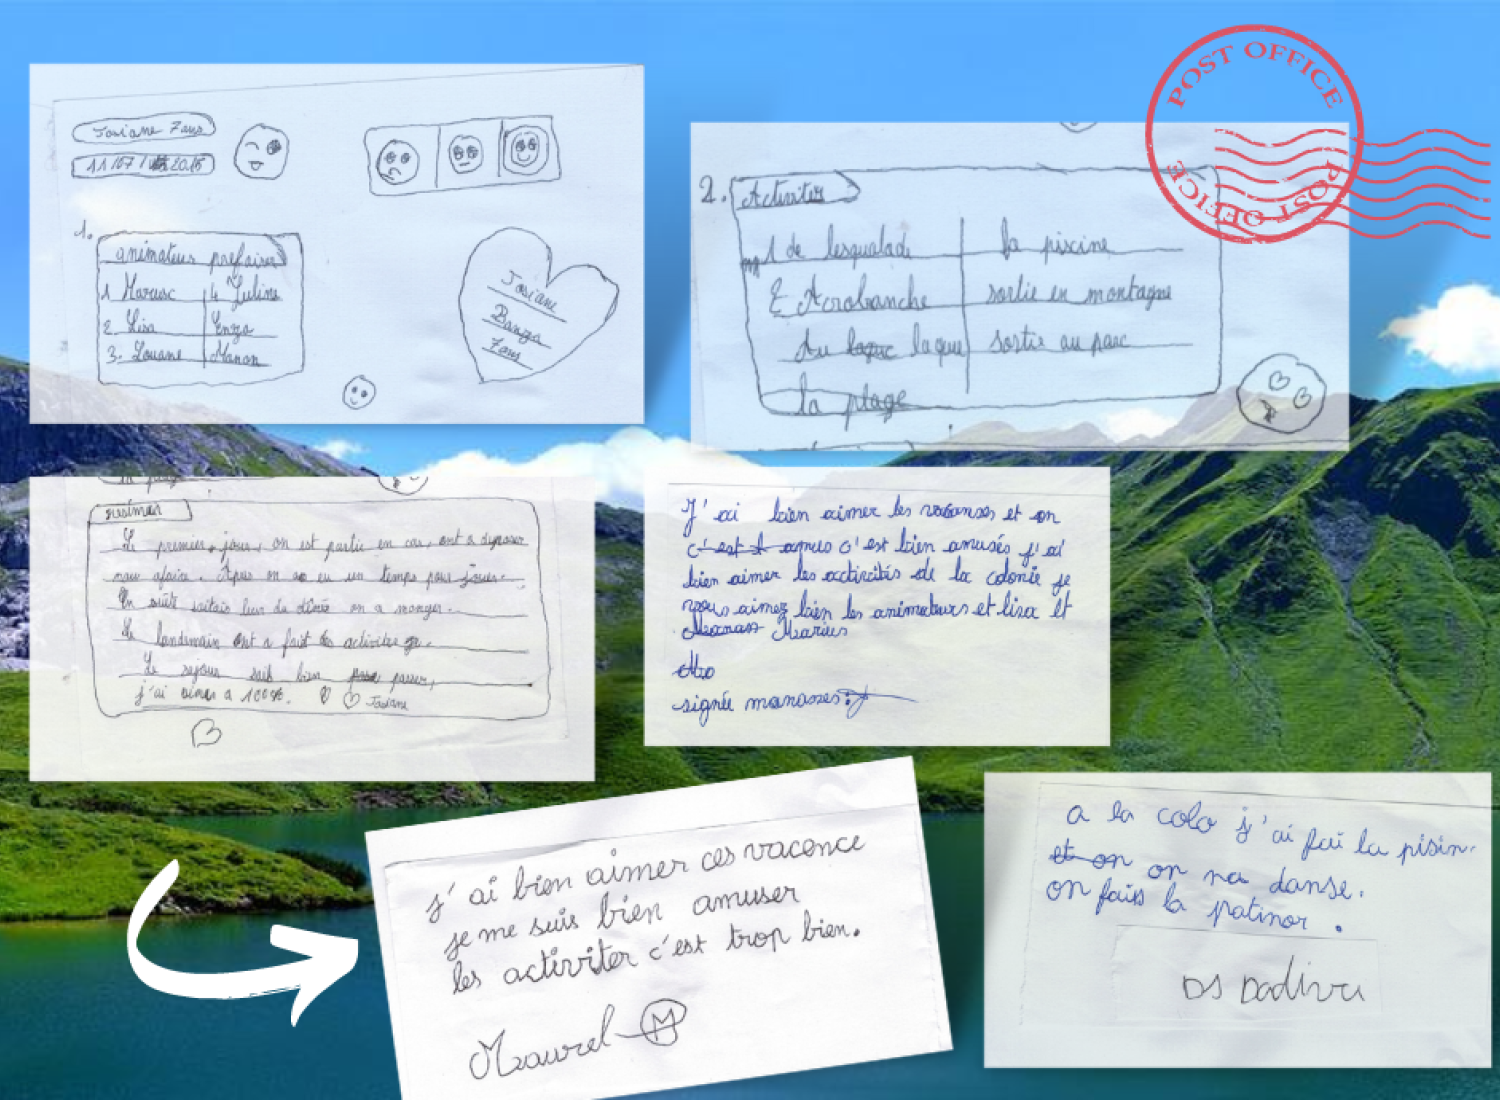 Josiane Zaus
11/07/2015
1.
animateus prefairer
1 Marusc 4 Juline
2. Lisa Enzo
3. Louane Manon
Josiane
Banza
Zaus
POST OFFICE
POST OFFICE
2. Activiter
1 de lesqualade la piscine
2 Acrobranche sortie en montagne
du laque sortie au parc
la plage
la plage
Le premier, jour, on est partie en car, ont a deposer
nau afaire. Apus on a eu un temps pour jouer.
En suite sitais leur du dinée on a manger.
Le landemain ont a fait des activiter
Le sejour sait bien passer,
j'ai aimer a 100%. Josiane
J'ai bien aimer les vacanses et on
c'est apres c'est bien amusés j'ai
bien aimer les activités de la colonie je
vous aimez bien les animateurs et lisa et
Marius
signée manasses
j'ai bien aimer ces vacence
je me suis bien amuser
les activiter c'est trop bien.
Maurel M
a la colo j'ai fai la pisin.
et on on na danse.
on faits la patinor.